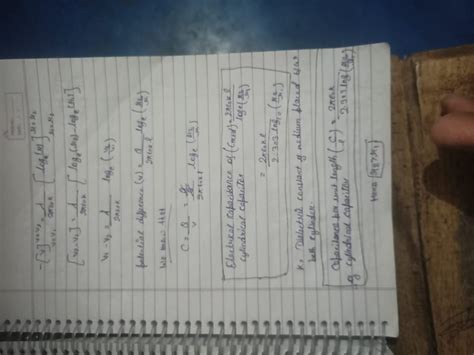 -[V]_{V=V₁}^{V=V₂} = λ/2πε₀k [log_e(r)]_{r=r₁}^{r=r₂}
-[V₂-V₁] = λ/2πε₀k [log_e(r₂)-log_e(r₁)]
V₁-V₂ = λ/2πε₀k log_e(r₂/r₁)
potential difference (V) = q/2πε₀kl log_e(r₂/r₁)
We know that
C = q/V = q/(q/2πε₀kl log_e(r₂/r₁))
Electrical capacitance of cylindrical capacitor = 2πε₀kl/log_e(r₂/r₁)
= 2πε₀kl/2.303 log₁₀(r₂/r₁)
K = Dielectric constant of medium placed
both cylinder.
Capacitance per unit length (C/l) of cylindrical capacitor = 2πε₀k/2.303 log(r₂/r₁)
Here [r₂>r₁]